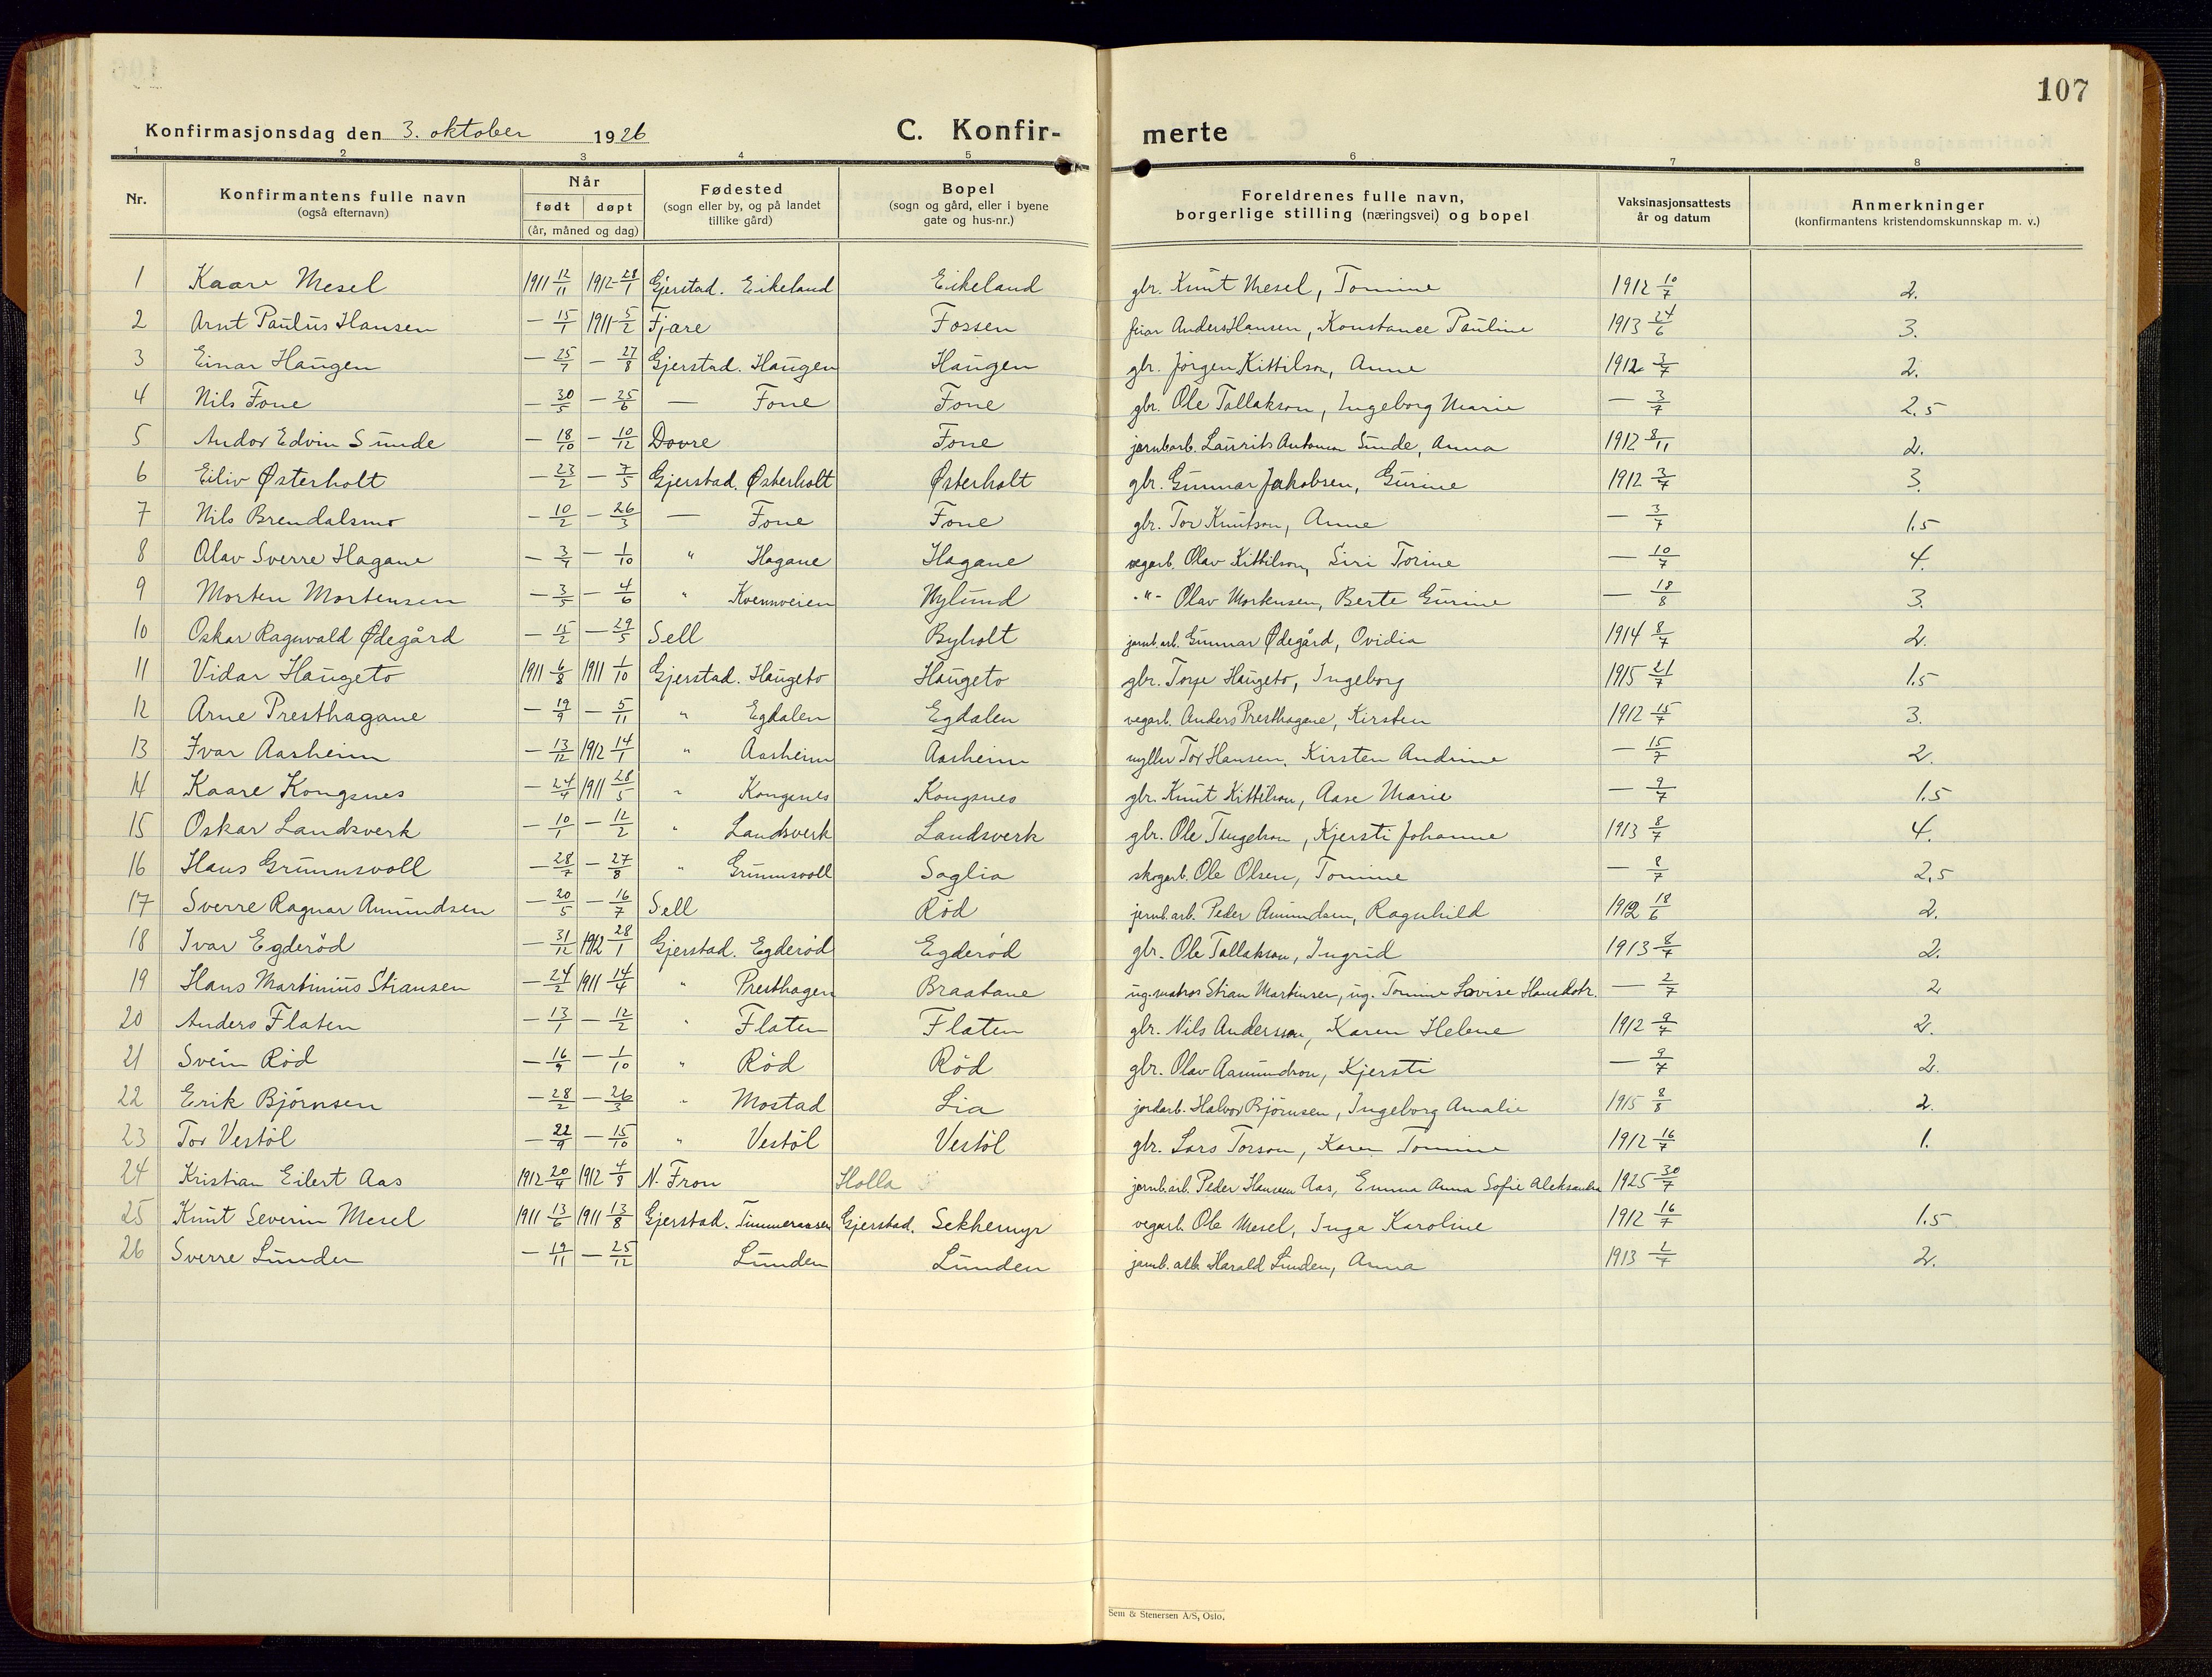 107
Konfirmasjonsdag den 3. oktober 1926 C. Konfir- merte
1 2 3 4 5 6 7 8
Nr. Konfirmantens fulle navn (også efternavn) Når født døpt (år, måned og dag) Fødested (sogn eller by, og på landet tillike gård) Bopel (sogn og gård, eller i byene gate og hus-nr.) Foreldrenes fulle navn, borgerlige stilling (næringsvei) og bopel Vaksinasjonsattests år og datum Anmerkninger (konfirmantens kristendomskunnskap m. v.)
1 Kaare Mesel 1911 12/11 1912 28/1 Gjerstad. Eikeland Eikeland gbr. Knut Mesel, Tomine 1912 10/7 2.
2 Arnt Paulus Hansen — 15/1 1911 5/2 Fjære Fossen Anders Hansen, Konstance Pauline 1913 24/6 3.
3 Einar Haugen — 25/7 — 27/8 Gjerstad. Haugen Haugen gbr. Jørgen Kittilson, Anne 1912 3/7 2.
4 Nils Fone — 30/5 — 25/6 — Fone Fone gbr. Ole Tallakson, Ingeborg Marie — 3/7 2,5
5 Andor Edvin Sunde — 18/10 — 10/12 Dovre Fone jernb.arb. Laurits Antonsen Sunde, Anna 1912 8/11 2.
6 Eiliv Østerholt — 23/2 — 7/5 Gjerstad. Østerholt Østerholt gbr. Gunnar Jakobsen, Gurine 1912 3/7 3.
7 Nils Brendalsmo — 10/2 — 26/3 — Fone Fone gbr. Tor Knutson, Anne — 3/7 1.5
8 Olav Sverre Hagane — 3/9 — 1/10 " Hagane Hagane vegarb. Olav Kittilson, Siri Torine — 10/7 4.
9 Morten Mortensen — 3/5 — 4/6 " Kvennveien Nylund -"- Olav Mortensen, Berte Gurine — 18/8 3.
10 Oskar Ragnvald Ødegård — 15/2 — 29/5 Sell Byholt jernb.arb. Gunnar Ødegård, Ovidia 1914 8/7 2.
11 Vidar Haugeto 1911 6/8 1911 1/10 Gjerstad. Haugeto Haugeto gbr. Torje Haugeto, Ingeborg 1915 21/7 1.5
12 Arne Presthagane — 19/9 — 5/11 " Egdalen Egdalen vegarb. Anders Presthagane, Kirsten 1912 15/7 3.
13 Ivar Aasheim — 13/12 1912 14/1 " Aasheim Aasheim myller Tor Hansen, Kirsten Andrine — 15/7 2.
14 Kaare Kongsnes — 24/4 1911 28/5 " Kongsnes Kongsnes gbr. Knut Kittilson, Aase Marie — 9/7 1.5
15 Oskar Landsverk — 10/1 — 12/2 " Landsverk Landsverk gbr. Ole Kjersti Johanne 1913 8/7 4.
16 Hans Grunnsvoll — 28/7 — 27/8 " Grunnsvoll Saglia skogarb. Ole Olsen, Tomine — 8/7 2,5
17 Sverre Ragnar Amundsen — 20/5 — 16/7 Sell Rød jernb.arb. Peder Amundsen, Ragnhild 1912 18/6 2.
18 Ivar Egderød — 31/12 1912 28/1 Gjerstad. Egderød Egderød gbr. Ole Tallakson, Ingrid 1913 8/7 2.
19 Hans Martinius Stiansen — 24/2 1911 14/4 " Presthagen Braatane ug. matros Stian Martinsen, ug. Tomine Lovise Hansdotr. — 2/7 2
20 Anders Flaten — 13/1 — 12/2 " Flaten Flaten gbr. Nils Anderson, Karen Helene 1912 9/7 2.
21 Svein Rød — 16/9 — 1/10 " Rød Rød gbr. Olav Aamundson, Kjersti — 9/7 2.
22 Erik Bjørnsen — 28/2 — 26/3 " Mostad Lia jordarb. Halvor Bjørnsen, Ingeborg Amalie 1915 8/8 2.
23 Tor Vestøl — 22/9 — 15/10 " Vestøl Vestøl gbr. Lars Torson, Karen Tomine 1912 16/7 1.
24 Kristian Eilert Aas 1912 20/4 1912 4/8 N. Fron Holla jernb.arb. Peder Hansen Aas, Emma Anna Sofie Aleksandra 1925 30/7
25 Knut Severin Mesel 1911 13/6 1911 13/8 Gjerstad. Timmeraasen Gjerstad. Sekkemyr vegarb. Ole Mesel, Inga Karoline 1912 16/7 1.5
26 Sverre Lunden — 19/11 — 25/12 Lunden Lunden jernb.arb. Harald Lunden, Anna 1913 2/7 2.
Sem & Stenersen A/S, Oslo.